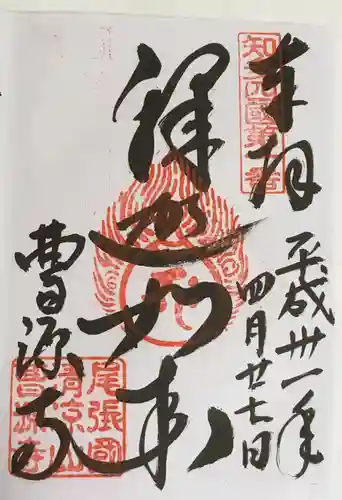 奉拝
知多四国第一番
平成卅一年
四月廿七日
釋迦如来
曹源寺
尾張國
清涼山
曹源寺